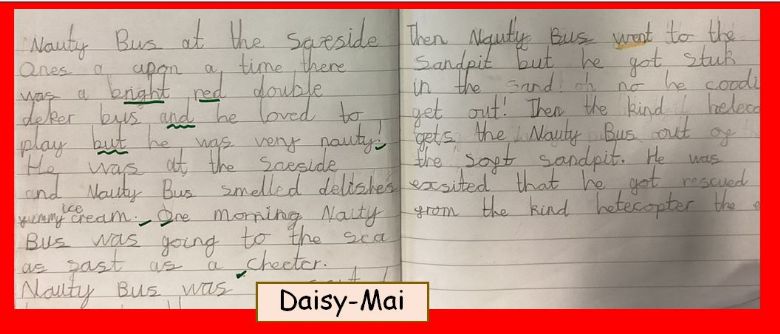 Nauty Bus at the Saeside
Ones a upon a time there
was a bright red double
deker bus and he loved to
play but he was very nauty!
He was at the Saeside
and Nauty Bus smelled delishes
yummy ice cream. One morning Nauty
Bus was going to the sea
as fast as a cheeter.
Nauty Bus was
Then Nauty Bus went to the
Sandpit but he got stuk
in the sand! oh no he
get out! Then the kind
gets the Nauty Bus out of
the soft sandpit. He was
exsited that he got rescued
from the kind helecopter the
Daisy-Mai